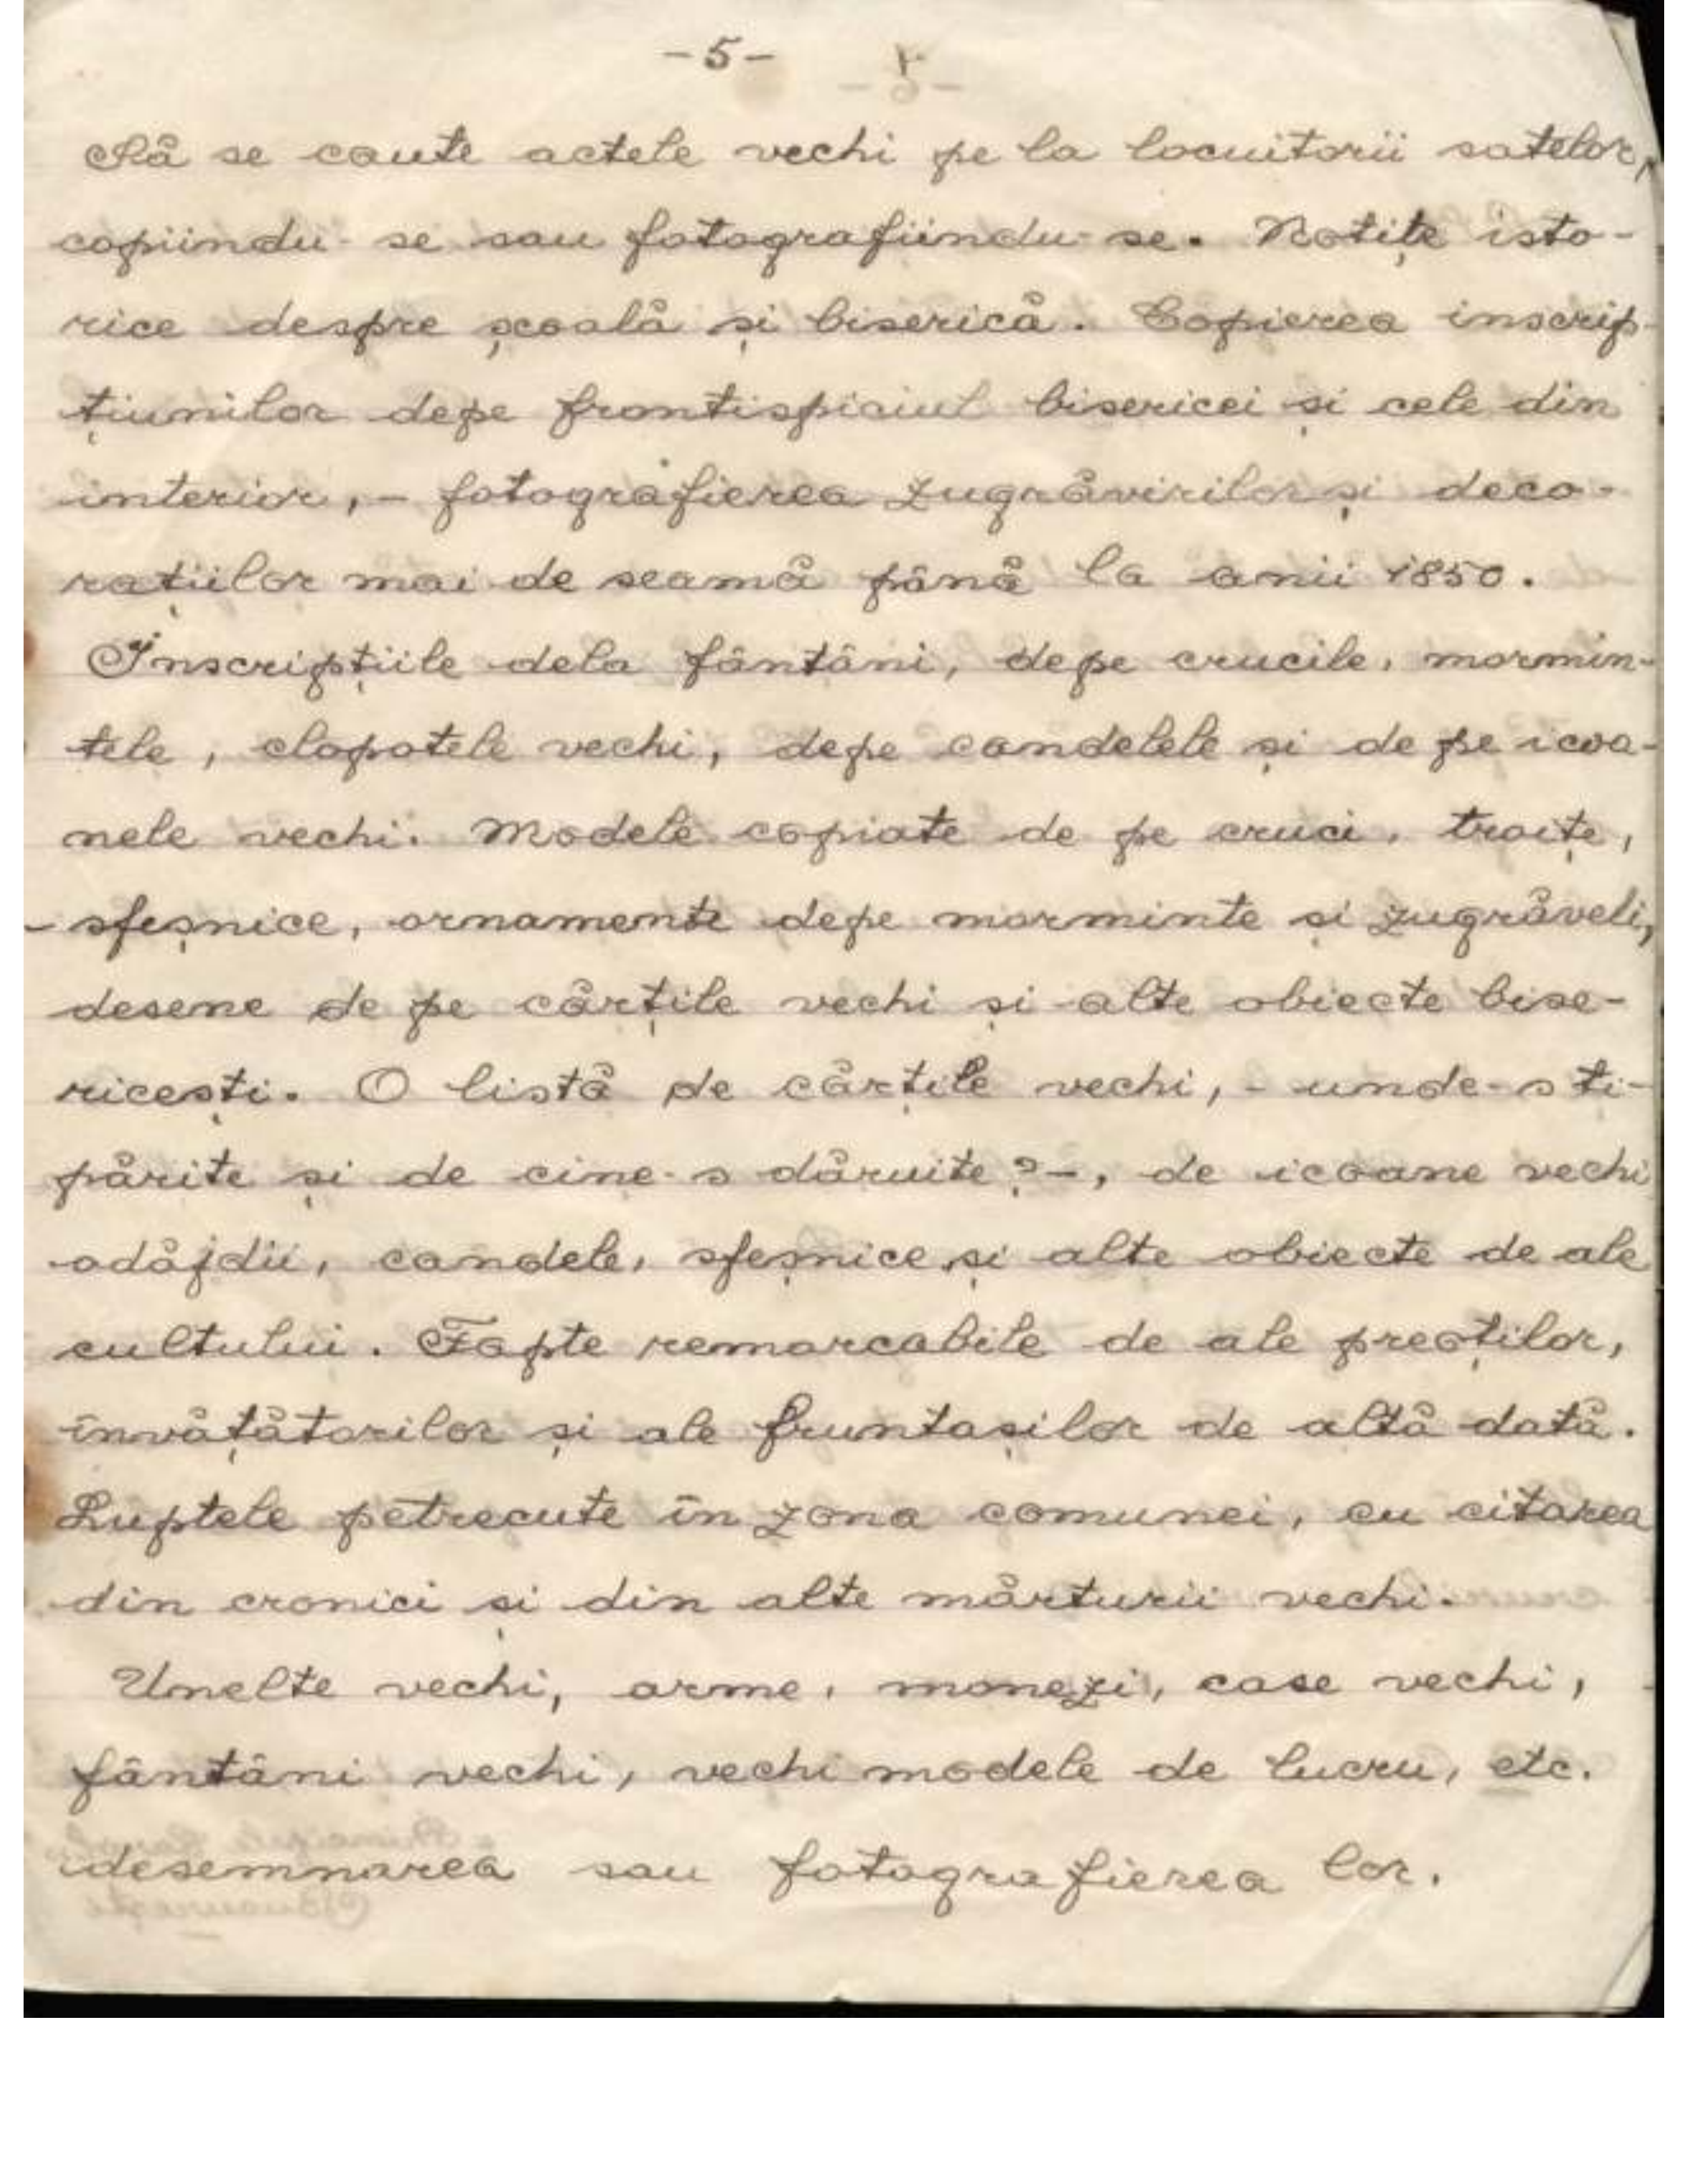 -5-
Să se caute actele vechi pe la locuitorii satelor,
copiindu-se sau fotografiindu-se. Notițe isto-
rice despre școală și biserică. Copierea inscrip-
țiunilor depe frontispiciul bisericei și cele din
interior, - fotografierea zugrăvirilor și deco-
rațiilor mai de seamă până la anii 1850.
Inscripțiile dela fântâni, depe crucile, mormin-
tele, clopotele vechi, depe candelele și de pe icoa-
nele vechi. Modele copiate de pe cruci, troițe,
sfeșnice, ornamente depe morminte și zugrăveli,
desene de pe cărțile vechi și alte obiecte bise-
ricești. O listă de cărțile vechi, - unde-s ti-
părite și de cine-s dăruite? -, de icoane vechi
odăjdii, candele, sfeșnice și alte obiecte de ale
cultului. Fapte remarcabile de ale preoților,
învățătorilor și ale fruntașilor de altă dată.
Luptele petrecute în zona comunei, cu citarea
din cronici și din alte mărturii vechi.
Unelte vechi, arme, monezi, case vechi,
fântâni vechi, vechi modele de lucru, etc.
desemnarea sau fotografierea lor.